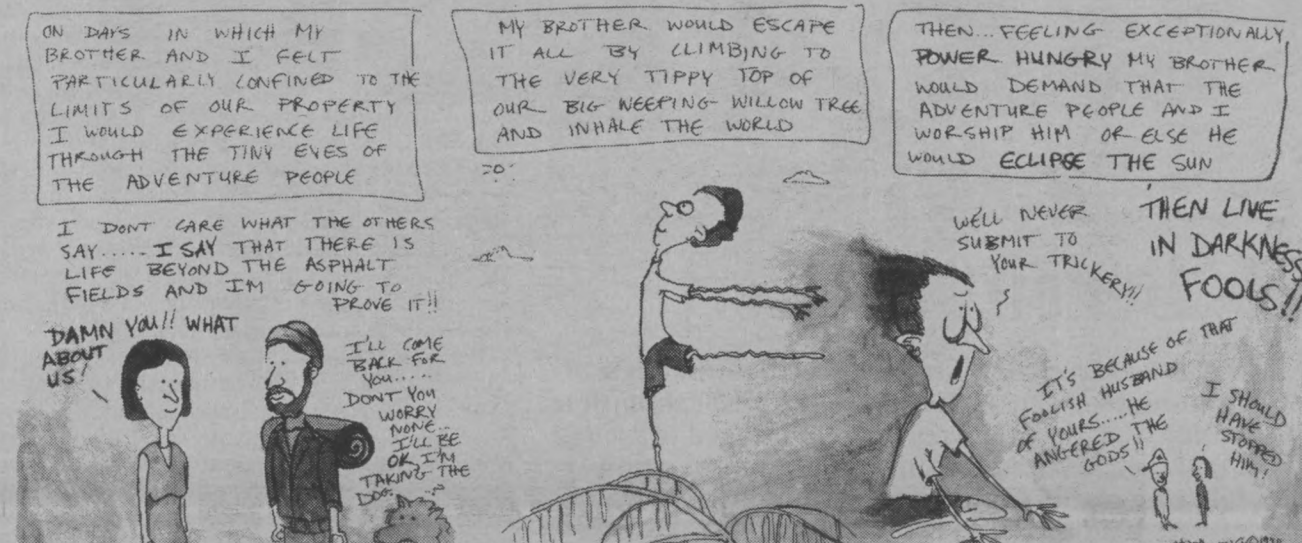 ON DAYS IN WHICH MY
BROTHER AND I FELT
PARTICULARLY CONFINED TO THE
LIMITS OF OUR PROPERTY
I WOULD EXPERIENCE LIFE
THROUGH THE TINY EYES OF
THE ADVENTURE PEOPLE
I DONT CARE WHAT THE OTHERS
SAY..... I SAY THAT THERE IS
LIFE BEYOND THE ASPHALT
FIELDS AND IM GOING TO
PROVE IT!!
DAMN YOU!! WHAT
ABOUT
US!
I'LL COME
BACK FOR
YOU.....
DONT YOU
WORRY
NONE..
I'LL BE
OK, I'M
TAKING THE
DOG
MY BROTHER WOULD ESCAPE
IT ALL BY CLIMBING TO
THE VERY TIPPY TOP OF
OUR BIG WEEPING WILLOW TREE
AND INHALE THE WORLD
THEN... FEELING EXCEPTIONALLY
POWER HUNGRY MY BROTHER
WOULD DEMAND THAT THE
ADVENTURE PEOPLE AND I
WORSHIP HIM OR ELSE HE
WOULD ECLIPSE THE SUN
WE'LL NEVER
SUBMIT TO
YOUR TRICKERY!!
THEN LIVE
IN DARKNESS
FOOLS!!
IT'S BECAUSE OF THAT
FOOLISH HUSBAND
OF YOURS..... HE
ANGERED THE
GODS!!
I SHOULD
HAVE
STOPPED
HIM!